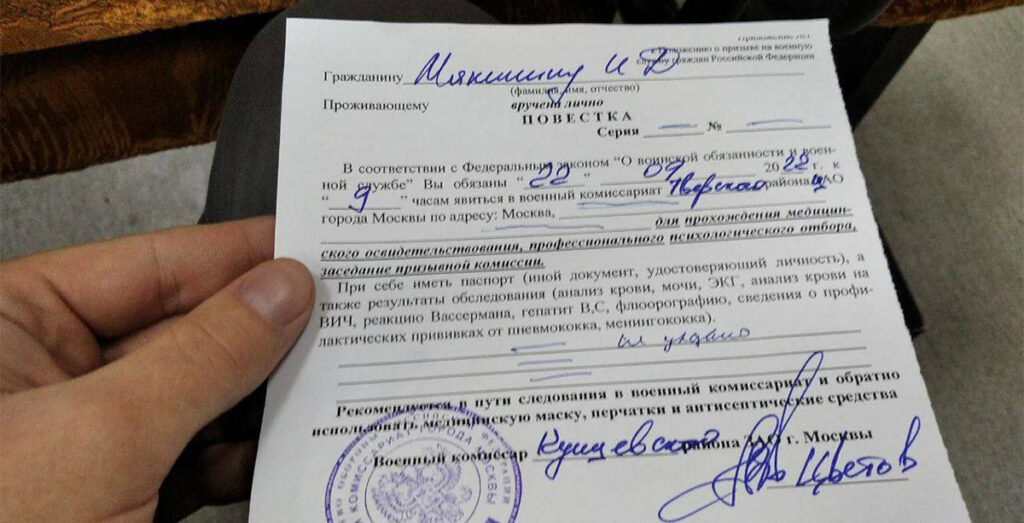 к положению о призыве на военную
службу граждан Российской Федерации
Гражданину Мякишину И Д
(фамилия, имя, отчество)
Проживающему вручена лично
ПОВЕСТКА
Серия №
В соответствии с Федеральным законом "О воинской обязанности и воен-
ной службе" Вы обязаны "22" 09 2022 г. к
"9" часам явиться в военный комиссариат Тверского района ЦАО
города Москвы по адресу: Москва,
для прохождения медицин-
ского освидетельствования, профессионального психологического отбора,
заседание призывной комиссии.
При себе иметь паспорт (иной документ, удостоверяющий личность), а
также результаты обследования (анализ крови, мочи, ЭКГ, анализ крови на
ВИЧ, реакцию Вассермана, гепатит В,С, флюорографию, сведения о профи-
лактических прививках от пневмококка, менингококка).
Рекомендуется в пути следования в военный комиссариат и обратно
использовать медицинскую маску, перчатки и антисептические средства
Военный комиссар района ЗАО г. Москвы
Цветов